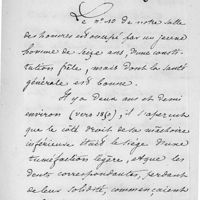 Le n° 10 de notre salle
des hommes est occupé par un jeune
homme de seize ans, d'une consti-
tution frêle, mais dont la santé
générale est bonne.
Il y a deux ans et demi
environ (vers 1850), il s'aperçut
que le côté droit de la mâchoire
inférieure était le siège d'une
tuméfaction légère, et que les
dents correspondantes, perdant
de leur solidité, commençaient